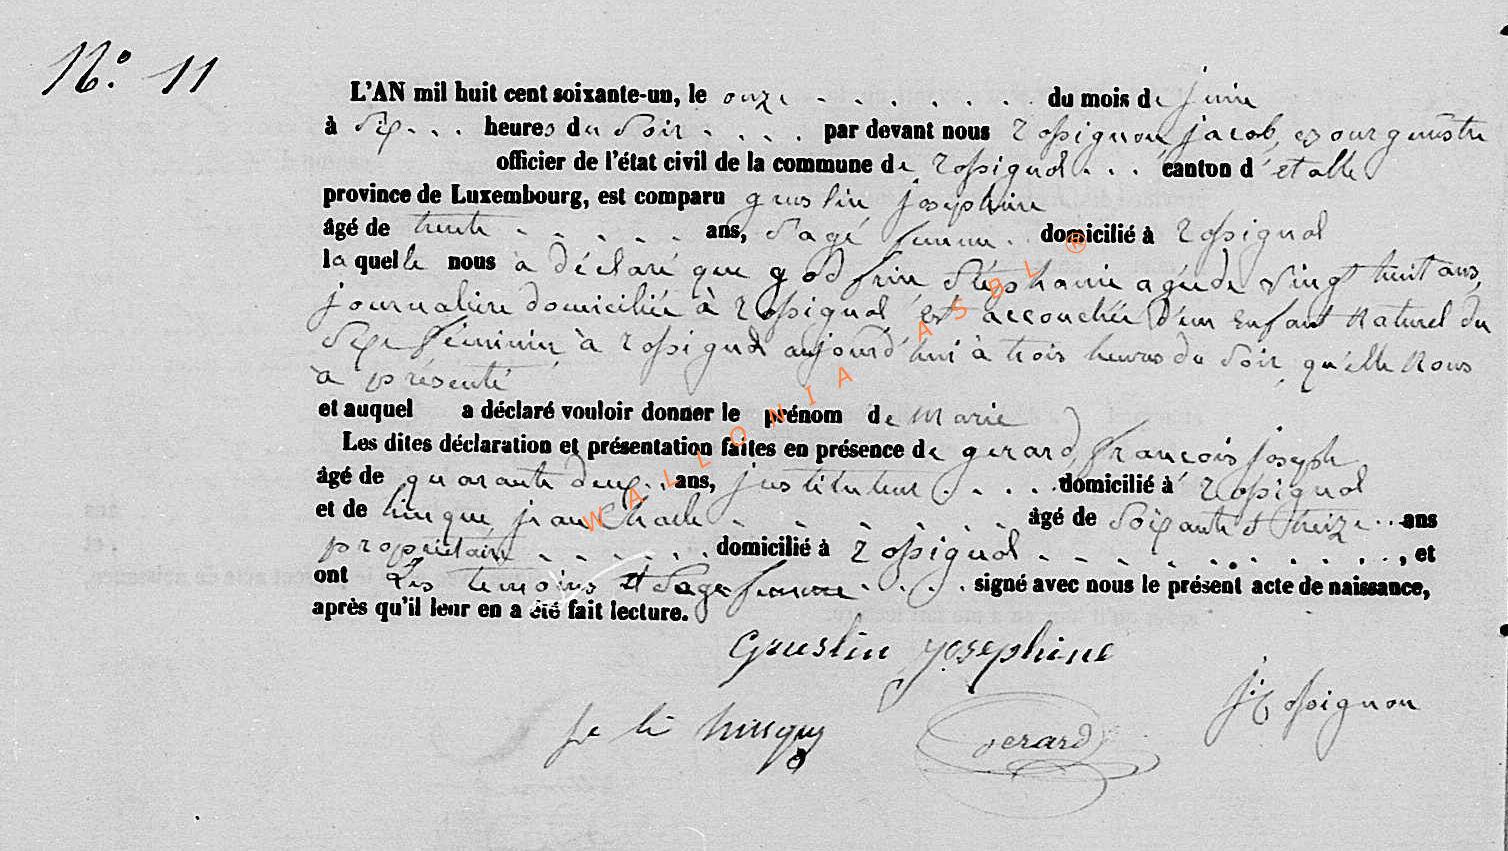 N.° 11
L'AN mil huit cent soixante-un, le onze . . . . . . . du mois de juin
à Six . . . heures du Soir . . . . par devant nous rossignon, jacob, bourgmestre
officier de l'état civil de la commune de rossignol . . . canton d'etalle
province de Luxembourg, est comparu gruslin josephine
âgé de trente . . . . . ans, Sage femme . . domicilié à rossignol
laquelle nous à déclaré que godfrin Stéphanie agée de vingt huit ans,
journalière domiciliée à rossignol est accouchée d'un Enfant Naturel du
Sexe féminin à rossignol aujourd'hui à trois heures du Soir, qu'elle Nous
à présenté
et auquel a déclaré vouloir donner le prénom de Marie
Les dites déclaration et présentation faites en présence de gerard, françois joseph
âgé de quarante deux . . ans, justituteur . . . . domicilié à rossignol
et de jean . . . . . . . âgé de Soixante et treize . . ans
propriétaire . . . . . . domicilié à rossignol . . . . . . . . . . , et
ont Les temoins et Sage femme . . . . signé avec nous le présent acte de naissance,
après qu'il leur en a été fait lecture.
Gruslin josephine
j: rossignon
gerard
WALLONIA ASBL ®